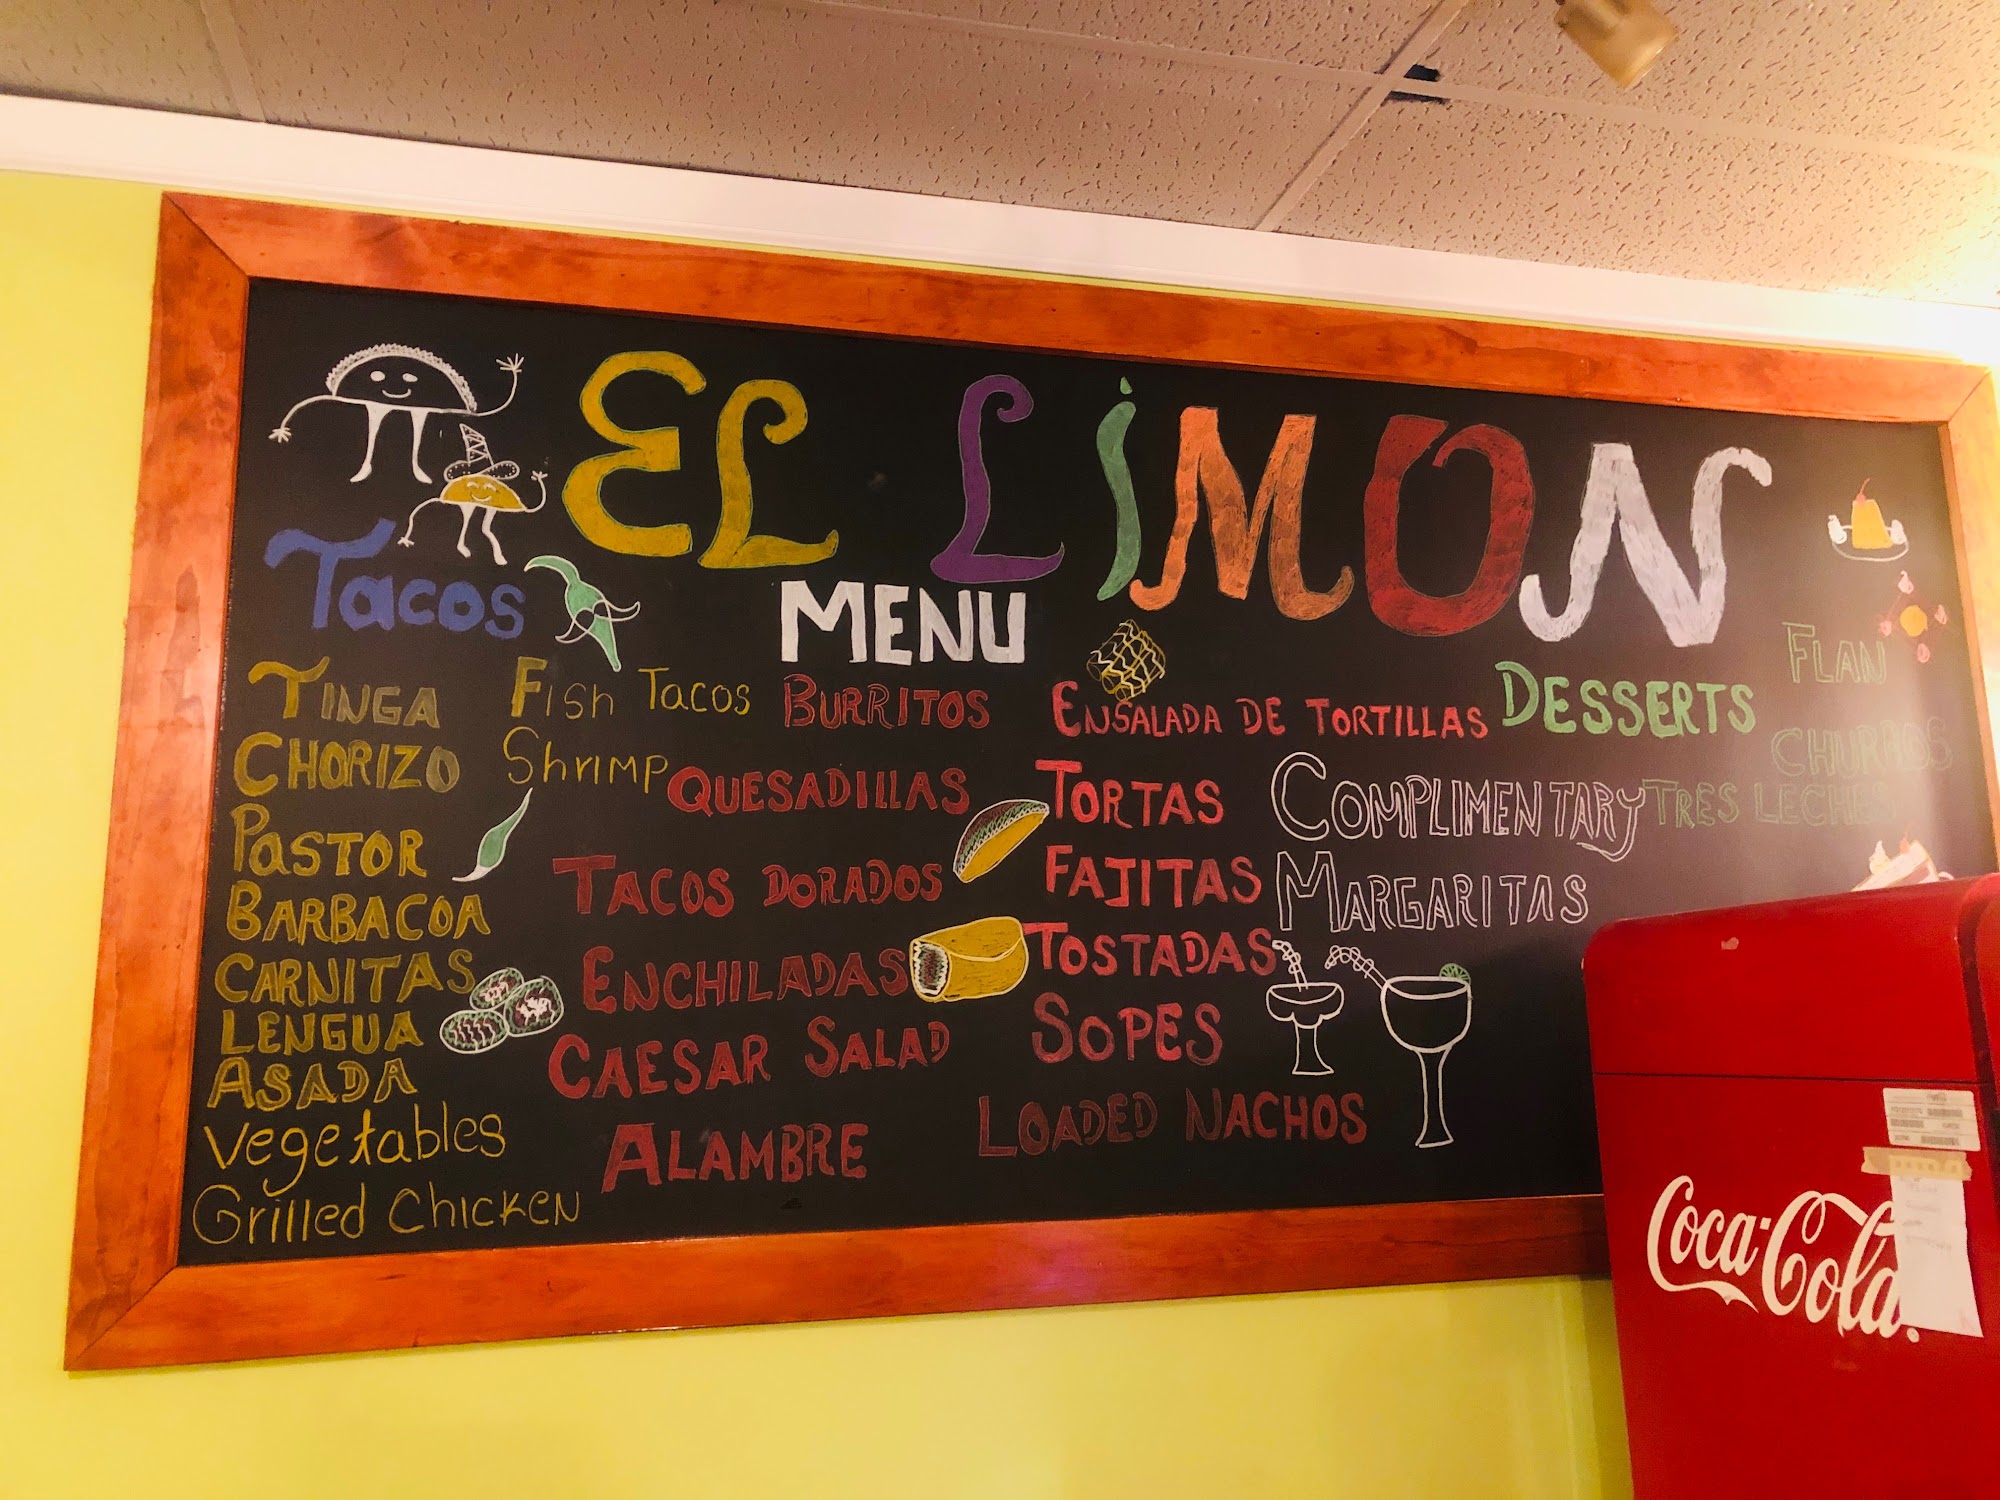 EL LiMON
MENU
Tacos
TINGA
CHORIZO
PaSTOR
BARBACOA
CARNITAS
LENGUA
ASADA
vegetables
Grilled Chicken
Fish Tacos
Shrimp
BURRITOS
QUESADILLAS
TACOS DORADOS
ENCHILADAS
CAESAR SALAD
ALAMBRE
ENSALADA DE TORTILLAS
TORTAS
FAJITAS
TOSTADAS
SOPES
LOADED NACHOS
COMPLIMENTARY
MARGARITAS
DESSERTS
FLAN
CHURROS
TRES LECHES
Coca-Cola